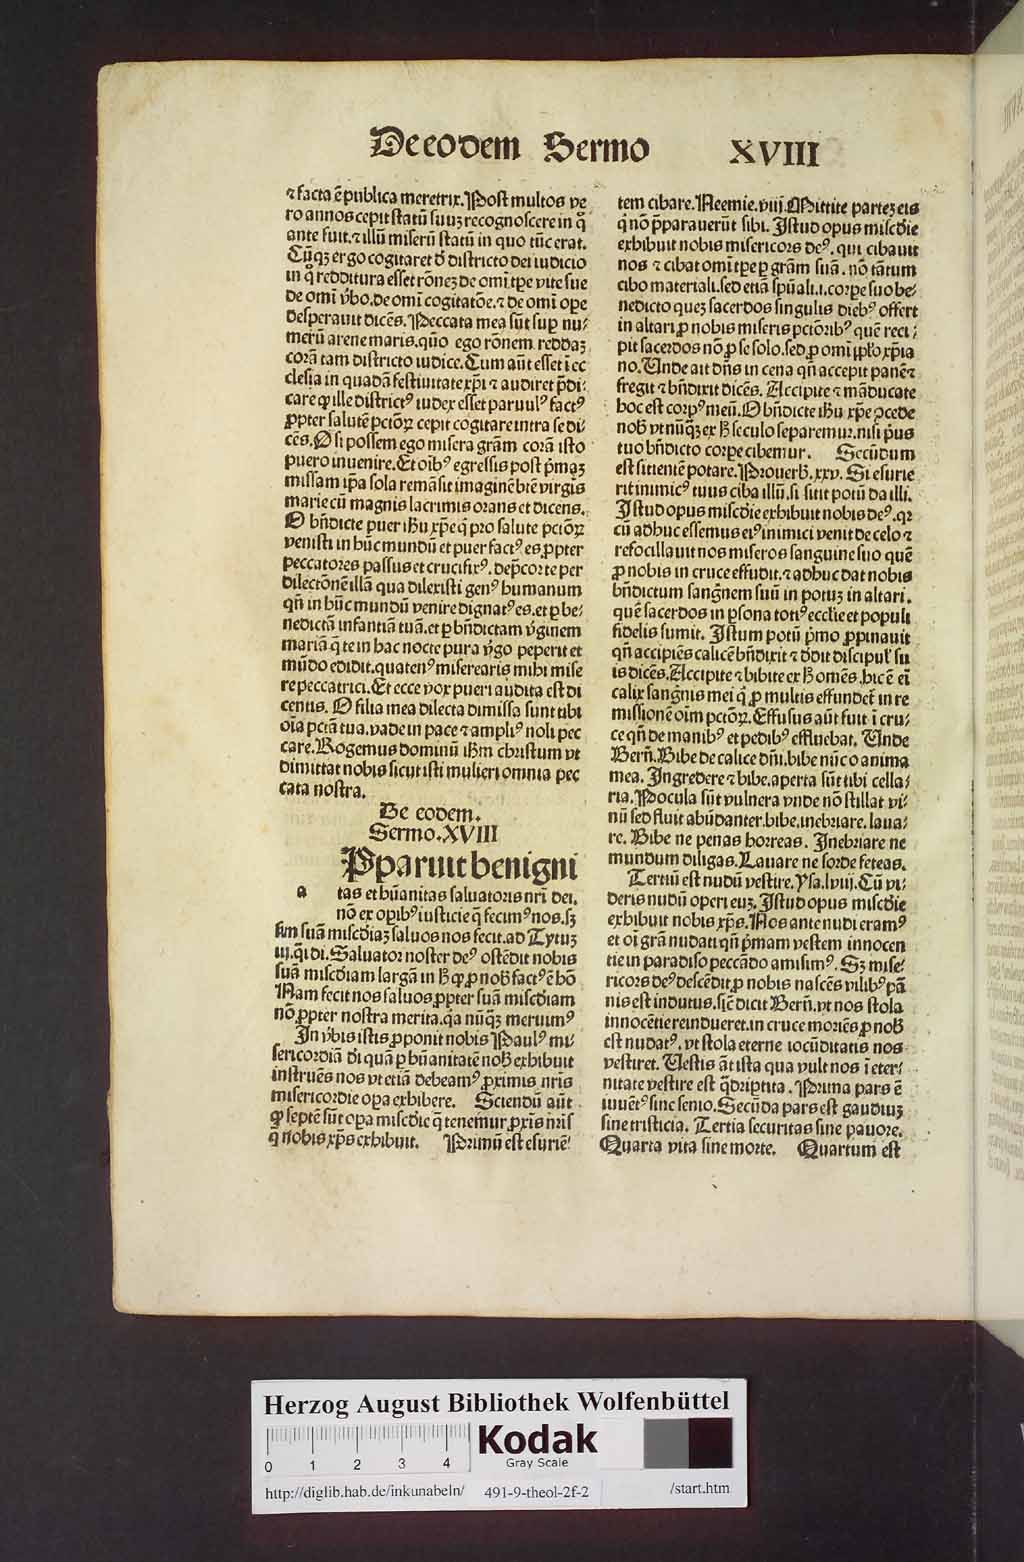 De eodem Sermo XVIII
⁊ facta ē publica meretrix. Post multos ve
ro annos cepit statū suuꝫ recognoscere in q̄
ante fuit. ⁊ illū miserū statū in quo tūc erat.
Cūqꝫ ergo cogitaret ď districto dei iudicio
in q̊ redditura esset rōneꝫ de om̄i tꝑe vite sue
de om̄i v̓bo. de om̄i cogitatōe. ⁊ de om̄i oꝑe
desperauit dicēs. Peccata mea sūt suꝑ nu⸗
merū arene maris. quō ego rōnem reddaꝫ
corā tam districto iudice. Cum aūt esset ī ec
clesia in quadā festiuitate xp̄i ⁊ audiret p̄di⸗
care ꝙ ille districtꝰ iudex esset paruulꝰ factꝰ
ꝓpter salutē pctōꝝ cepit cogitare intra se di⸗
cēs. O si possem ego misera grām corā isto
puero inuenire. Et oīb̓ꝰ egressis post p̓maꝫ
missam ip̄a sola remāsit imaginē btē virgīs
marie cū magnis lacrimis orans et dicens.
O bn̄dicte puer ihū xp̄e q̓ pro salute pctōꝝ
venisti in hūc mundū et puer factꝰ es. ꝓpter
peccatores passus et crucifixꝰ. dep̄cor te per
dilectōnē illā qua dilexisti genꝰ humanum
qn̄ in hūc mundū venire dignatꝰ es. et ꝑ be⸗
nedictā infantiā tuā. et ꝑ bn̄dictam v̓ginem
mariā q̄ te in hac nocte pura v̓go peperit et
mūdo edidit. quatenꝰ miserearis mihi mise
re peccatrici. Et ecce vox pueri audita est di
centis. O filia mea dilecta dimissa sunt tibi
oīa pctā tua. vade in pace ⁊ ampliꝰ noli pec
care. Rogemus dominū ihm̄ christum vt
dimittat nobis sicut isti mulieri omnia pec
cata nostra.
De eodem.
Sermo. XVIII
Pparuit benigni
a tas et hūanitas saluatoris nr̄i dei.
nō ex opib̓ꝰ iusticie q̄ fecimꝰ nos. sꝫ
fm suā misc̄diaꝫ saluos nos fecit. ad Tytuꝫ
iii. q̄i di. Saluator noster deꝰ ostēdit nobis
suā misc̄diam largā in hͦ ꝙ ꝓ nob̓ factꝰ ē hō
Nam fecit nos saluos ꝓpter suā misc̄diam
nō ꝓpter nostra merita. q̓a nūqꝫ meruimꝰ
In v̓bis istis ꝓponit nobis Paulꝰ mi⸗
sericordiā di quā ꝑ hūanitatē nob̓ exhibuit
instruēs nos vt etiā debeamꝰ ꝓximis nr̄is
misericordie oꝑa exhibere. Sciendū aūt
ꝙ septē sūt oꝑa misc̄die q̄ tenemur ꝓxīs nr̄is
q̄ nobis xp̄s exhibuit. Primū est esuriē⸗
tem cibare. Neemie. viij. Mittite parteꝫ eis
q̓ nō p̄parauerūt sibi. Istud opus misc̄die
exhibuit nobis misericors deꝰ. qui cibauit
nos ⁊ cibat om̄i tꝑe ꝑ grām suā. nō tātum
cibo materiali. sed etiā sp̄uali. i. corꝑe suo be⸗
nedicto queꝫ sacerdos singulis dieb̓ꝰ offert
in altari ꝓ nobis miseris pctōrib̓ꝰ quē reci⸗
pit sacerdos nō ꝓ se solo. sed ꝓ om̄i pplo xp̄ia
no. Unde ait dn̄s in cena qn̄ accepit panē ⁊
fregit ⁊ bn̄dixit dicēs. Accipite ⁊ māducate
hoc est corpꝰ meū. O bn̄dicte ihū xp̄e ꝯcede
nob̓ vt nūqꝫ ex hͦ seculo separemur. nisi p̓us
tuo bn̄dicto corꝑe cibemur. Secūdum
est sitientē potare. Prouerb̓. xxv. Si esurie
rit inimicꝰ tuus ciba illū. si sitit potū da illi.
Istud opus misc̄die exhibuit nobis deꝰ. qꝛ
cū adhuc essemus eiꝰ inimici venit de celo ⁊
refocillauit nos miseros sanguine suo quē
ꝓ nobis in cruce effudit. ⁊ adhuc dat nobis
bn̄dictum sang̓nem suū in potuꝫ in altari.
quē sacerdos in ꝑsona totiꝰ ecclie et populi
fidelis sumit. Istum potū p̓mo ꝓpinauit
qn̄ accipiēs calicē bn̄dixit ⁊ ďdit discipul̓ su
is dicēs. Accipite ⁊ bibite ex hͦ omēs. hic ē eī
calix sang̓nis mei q̓ ꝓ multis effundet̄ in re
missionē oīm pctōꝝ. Effusus aūt fuit ī cru⸗
ce qn̄ de manib̓ꝰ et pedib̓ꝰ effluebat. Unde
Bern̄. Bibe de calice dn̄i. bibe nūc o anima
mea. Ingredere ⁊ bibe. aperta sūt tibi cella⸗
ria. Pocula sūt vulnera vnde nō stillat vi⸗
nū sed fluit abūdanter. bibe. inebriare. laua⸗
re. Bibe ne penas horreas. Inebriare ne
mundum diligas. Lauare ne sorde feteas.
Tertiū est nudū vestire. Ysa. lviij. Cū vi⸗
deris nudū operi euꝫ. Istud opus misc̄die
exhibuit nobis xp̄s. Nos ante nudi eramꝰ
et oī grā nudati qn̄ p̓mam vestem innocen
tie in paradiso peccādo amisimꝰ. Sꝫ mise⸗
ricors deꝰ descēdit ꝓ nobis nascēs vilib̓ꝰ pā
nis est indutus. sic̄ dicit Bern̄. vt nos stola
innocētie reindueret. in cruce moriēs ꝓ nob̓
est nudatꝰ. vt stola eterne iocūditatis nos
vestiret. Uestis āt ista qua vult nos ī eter⸗
nitate vestire est q̓dript̄ita. Prima pars ē
iuuētꝰ sine senio. Secūda pars est gaudiuꝫ
sine tristicia. Tertia securitas sine pauore.
Quarta vita sine morte. Quartum est
Herzog August Bibliothek Wolfenbüttel
0 1 2 3 4
Kodak
Gray Scale
http://diglib.hab.de/inkunabeln/ 491-9-theol-2f-2 /start.htm